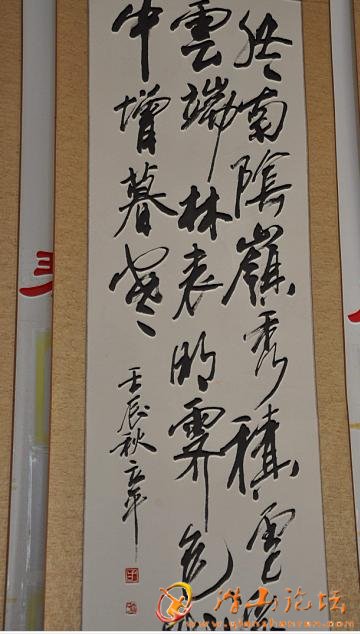 終南陰嶺秀積雪
雲端林表明霽色
中增暮寒
壬辰秋立平
潜山论坛